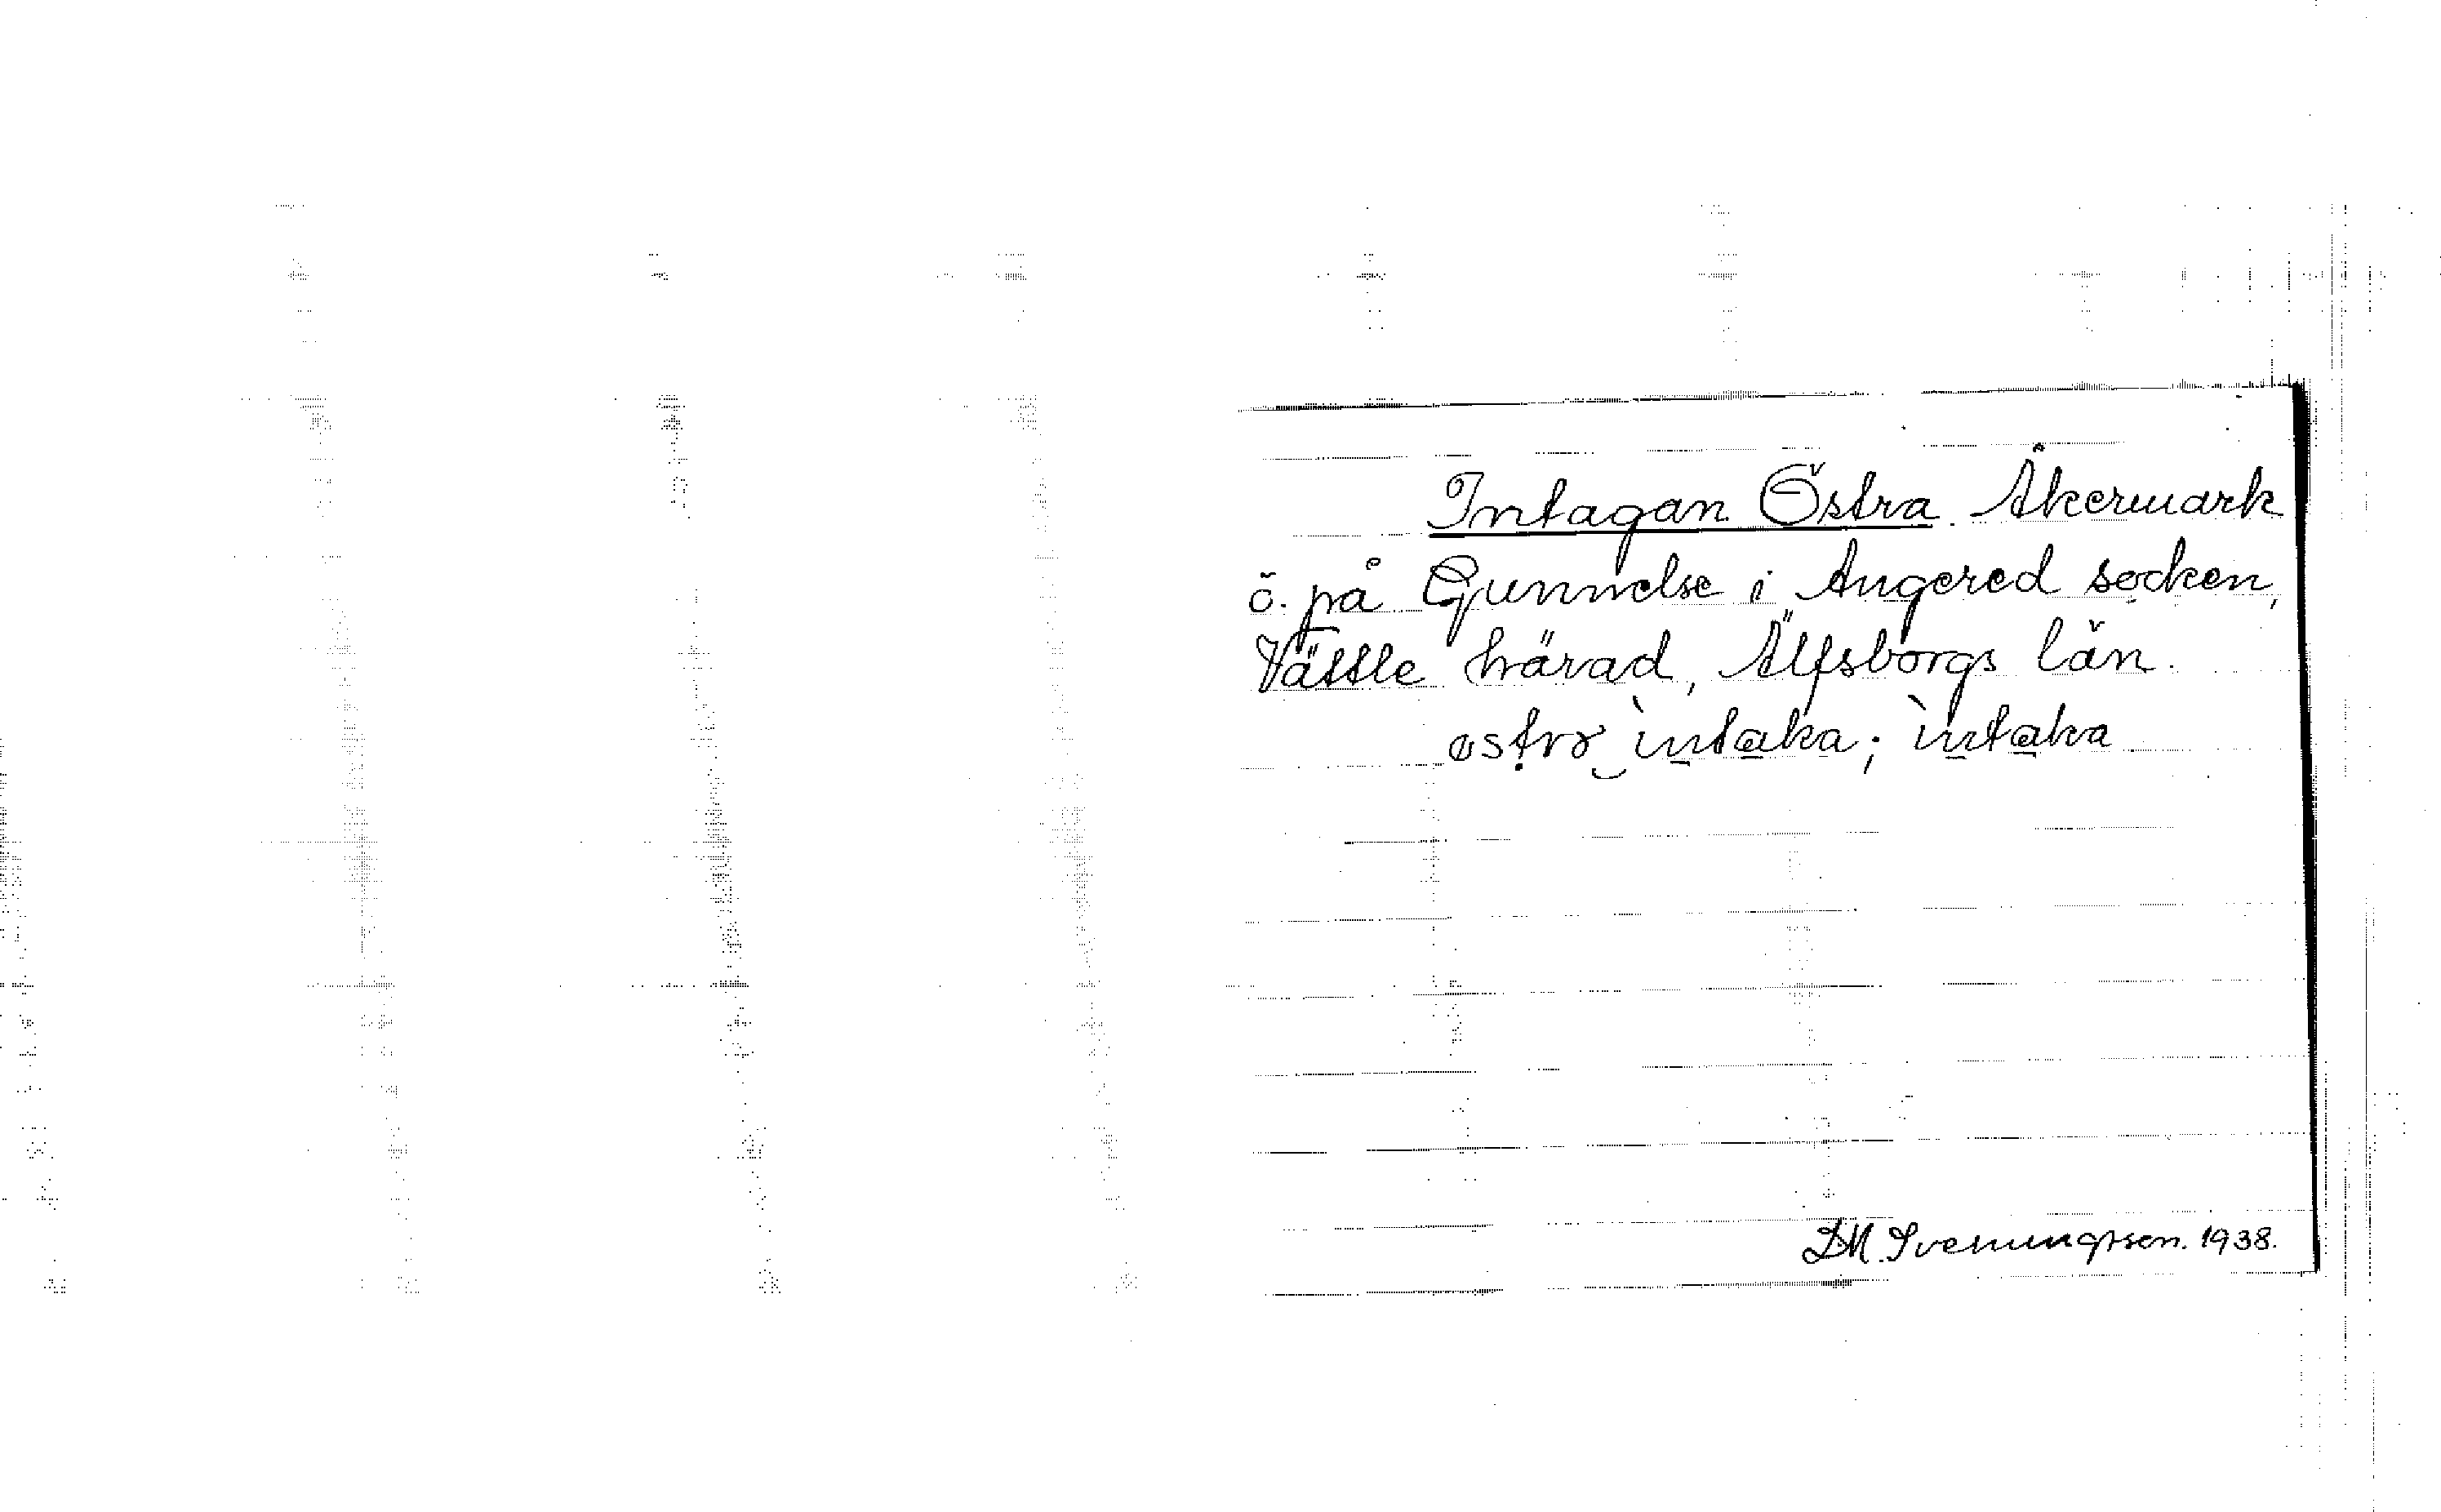 Intagan Östra. Åkermark
ö. på Gunnelse i Angered socken,
Vättle härad, Älfsborgs län.
østrɤ ìntaka; ìntaka
D.M. Svenungsson. 1938.